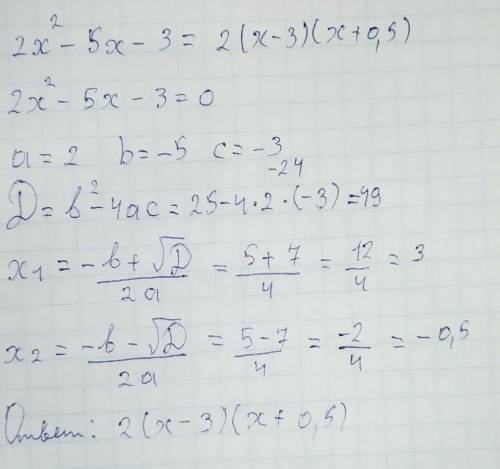 2x² - 5x - 3 = 2(x-3)(x+0,5)
2x² - 5x - 3 = 0
a = 2 b = -5 c = -3
-24
D = b² - 4ac = 25 - 4 * 2 * (-3) = 49
x₁ = (-b + √D)/(2a) = (5+7)/4 = 12/4 = 3
x₂ = (-b - √D)/(2a) = (5-7)/4 = -2/4 = -0,5
Ответ: 2(x-3)(x+0,5)